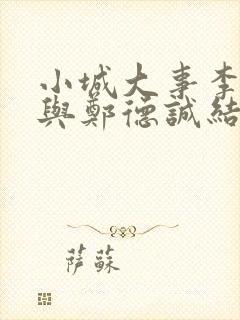 小城大事李
與鄭德誠結
萨蘇